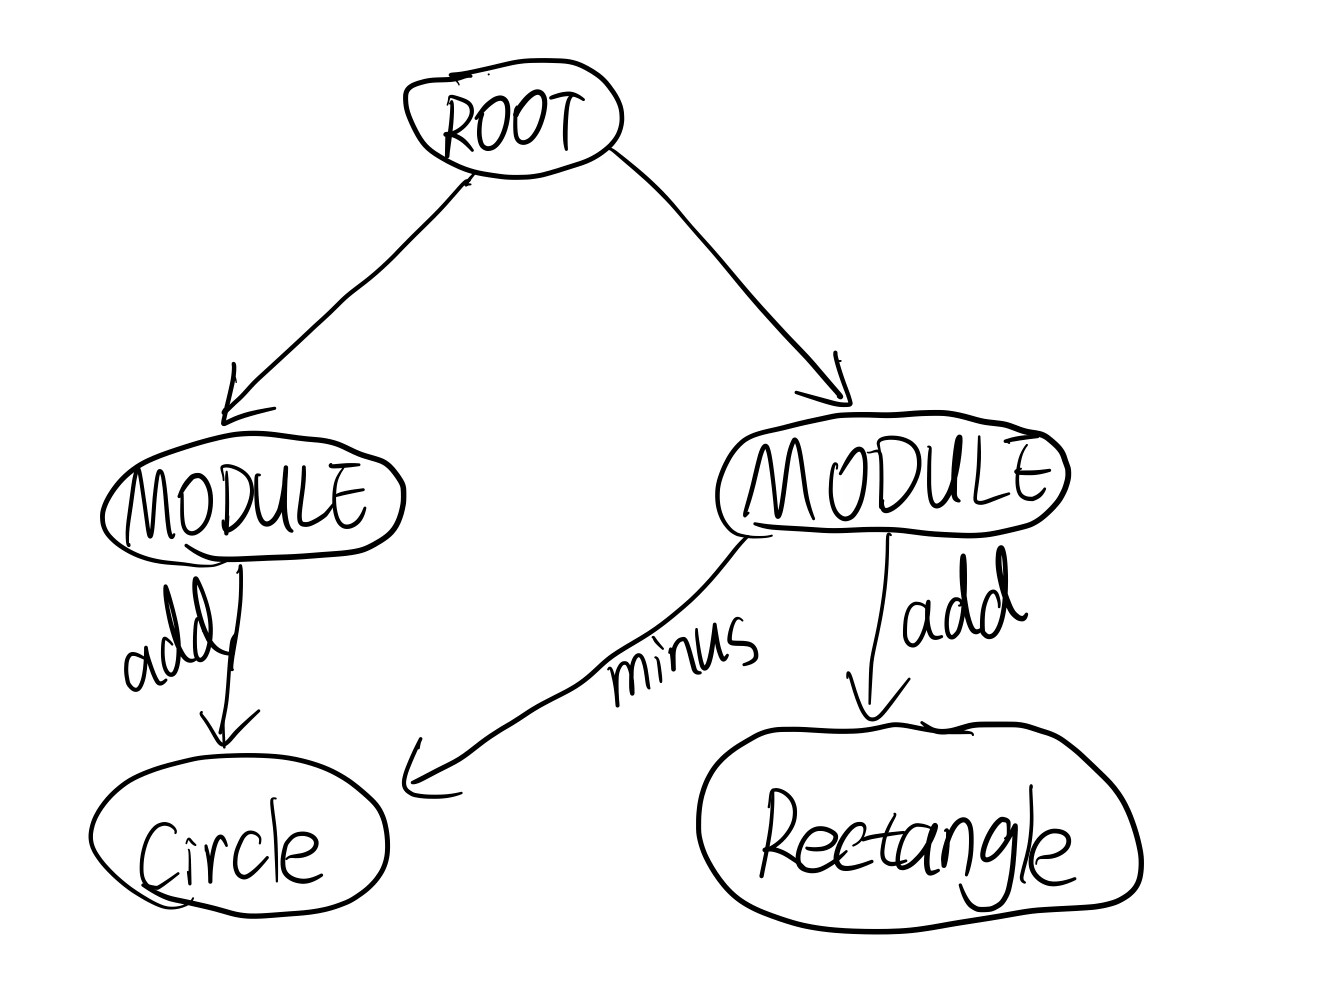 ROOT
MODULE
MODULE
add
add
minus
Circle
Rectangle